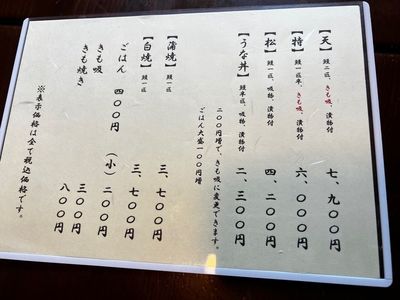 【天】 鰻二匹、きも吸、漬物付 七、九〇〇円
【特】 鰻一匹半、きも吸、漬物付 六、〇〇〇円
【松】 鰻一匹、吸物、漬物付 四、二〇〇円
【うな丼】 鰻半匹、吸物、漬物付 二、三〇〇円
二〇〇円増で、きも吸に変更できます。
ごはん大盛一〇〇円増
【蒲焼】 鰻一匹 三、七〇〇円
【白焼】 鰻一匹 三、七〇〇円
ごはん 四〇〇円 (小) 二〇〇円
きも吸 三〇〇円
きも焼き 八〇〇円
※表示価格は全て税込価格です。